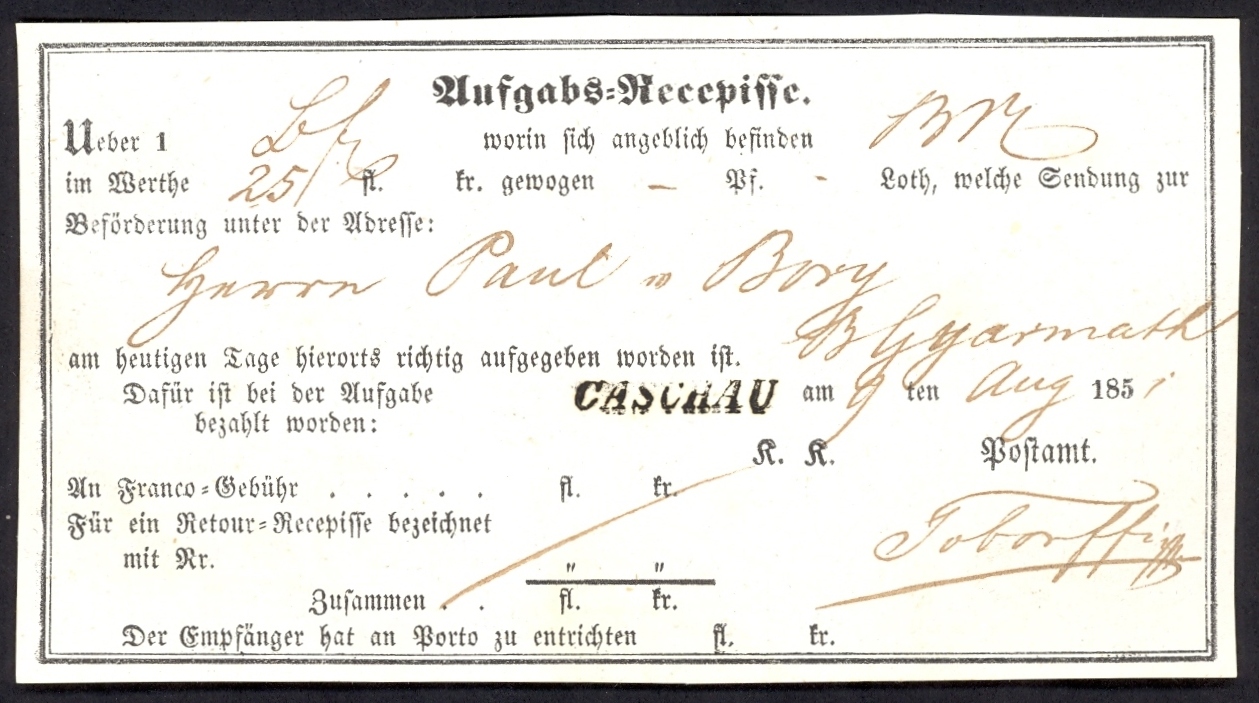 Aufgabs-Recepisse.
Ueber 1 Bf worin sich angeblich befinden BN
im Werthe 25 fl. kr. gewogen — Pf. - Loth, welche Sendung zur
Beförderung unter der Adresse:
Herrn Paul v Bory
B Gyarmath
am heutigen Tage hierorts richtig aufgegeben worden ist.
Dafür ist bei der Aufgabe CASCHAU am 9 ten Aug 1851
bezahlt worden:
K. K. Postamt.
An Franco-Gebühr . . . . . fl. kr.
Für ein Retour-Recepisse bezeichnet
mit Nr. " "
Zusammen . . fl. kr.
Der Empfänger hat an Porto zu entrichten fl. kr.